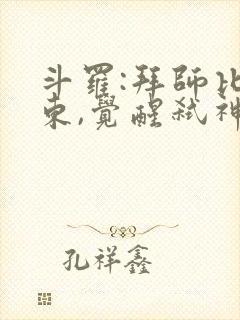 斗羅:拜師比
東,覺醒弒神
孔祥鑫